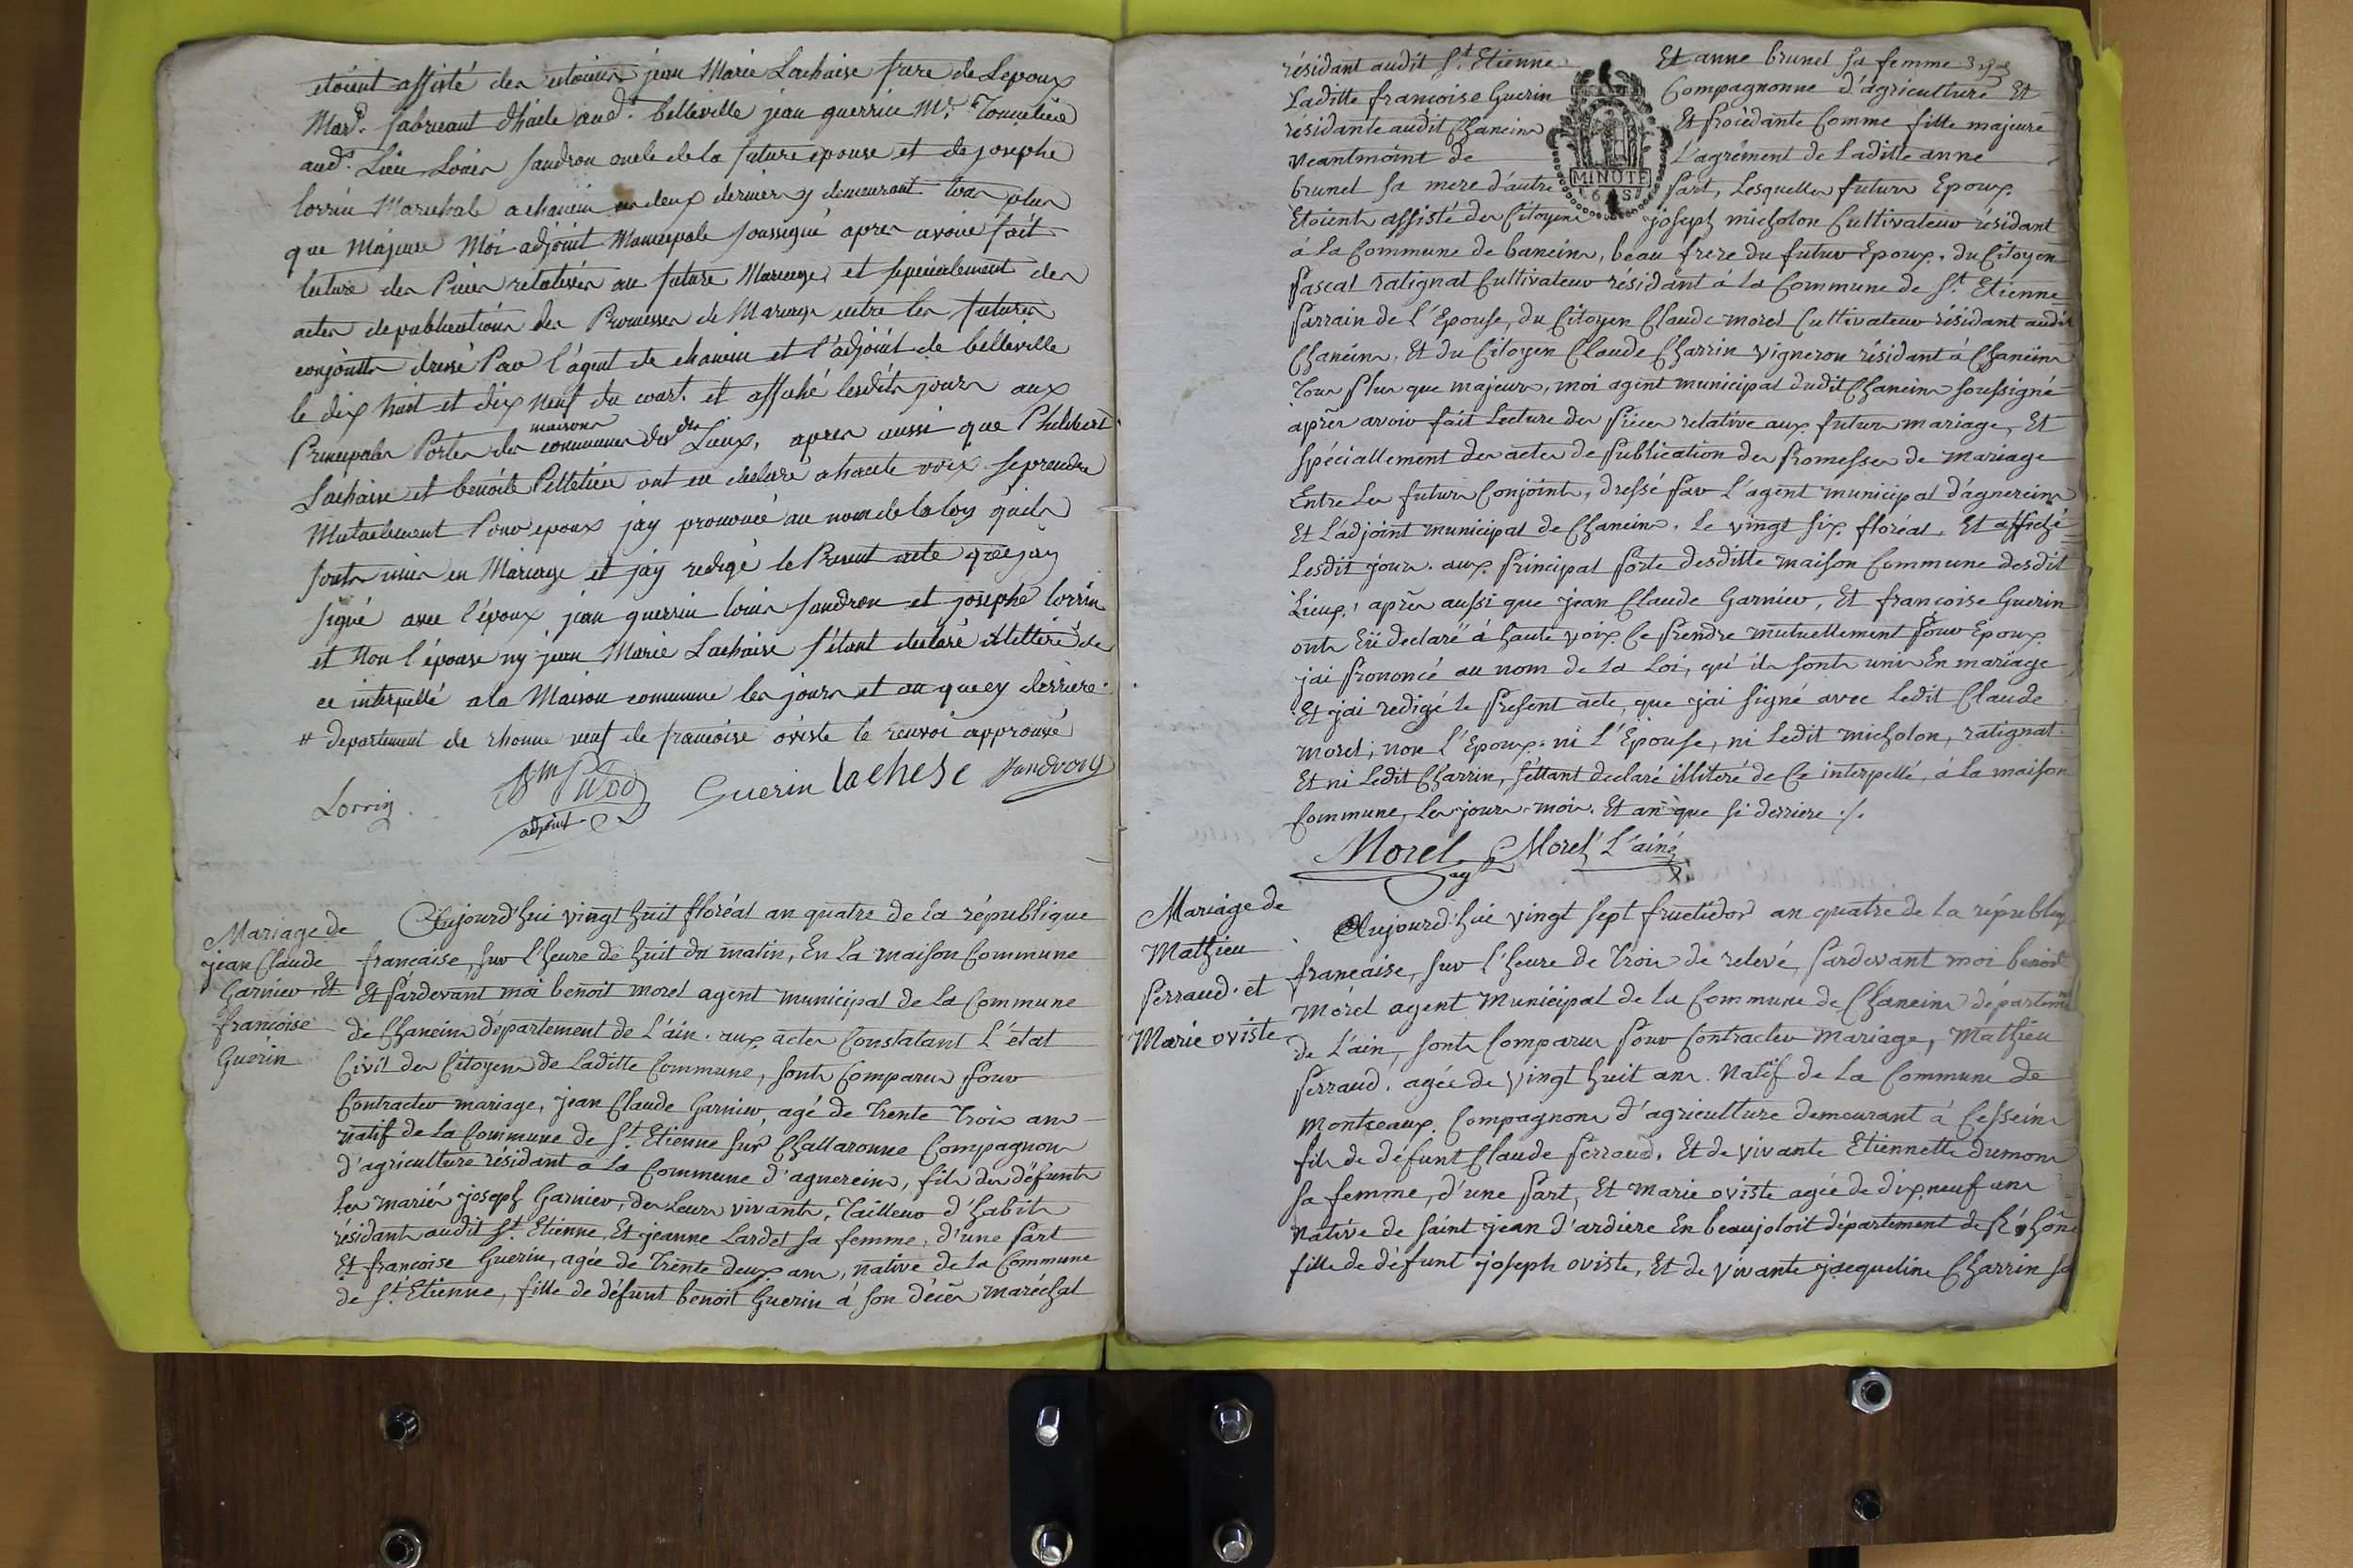 etoient assisté des citoiens jean Marie Lachaise frere de Lepoux
Mard. fabricant dhuile aud. belleville jean guerrin Mr. Tonnelier
aud. Lieu Louis Sandron oncle de la future epouse et de josephe
lorrin Marechale a chanein les deux derniers y demeurant tous plus
que Majeurs Moi adjoint Municipale soussigné apres avoir fait
lecture des Pieces relatives au futur Mariage, et specialement des
actes de publications des Promesses de Mariage entre les futurs
conjoints dressé Par l'agent de chanein et l'adjoint de belleville
le dix huit et dix neuf du court. et affiché lesdits jours aux
Principales Portes des maisons communes desdts Lieux, apres aussi que Philibert
Lachaise et benoite Pelletier ont eu declaré a haute voix se prendre
Mutuelement Pour epoux jay prononcé au nom de la loy quils
sonts unis en Mariage et jay redigé le Present acte que jay
signé avec l'époux jean guerrin louis sandron et josephe lorrin
et Non l'épouse ny jean Marie Lachaise s'étant declaré illetteré de
ce interpellé a la Maison commune les jours et an que cy derriere.
# departement de rhonne neuf de francoise oviste le renvoi approuvé
Lorrin Guerin lachese sandron
adjoint
Mariage de
jean Claude
Garnier Et
francoise
Guérin
Aujourd'hui vingt huit floréal an quatre de la république
francaise, sur l'heure de huit du matin, En la maison Commune
Et pardevant moi benoit morel agent municipal de la Commune
de Chaneins département de L'ain. aux actes Constatant L'état
Civil des Citoyens de Laditte Commune, sonts Comparus pour
Contracter mariage, jean Claude Garnier agé de Trente Trois ans
natif de la Commune de St. Etienne sur Challaronne Compagnon
d'agriculture résidant a la Commune d'agnereins, fils des défunts
les mariés joseph Garnier, des leurs vivants, Tailleur d'habits
résidants audit St. Etienne, Et jeanne Lardet sa femme, d'une part
Et francoise Guerin, agée de Trente deux ans, native de la Commune
de St. Etienne, fille de défunt benoit Guerin à son décès maréchal
résidant audit St. Etienne Et anne brunet sa femme
Laditte francoise Guerin Compagnonne d'agriculture Et
résidante audit Chaneins Et procédante Comme fille majeure
neantmoint de L'agrément de Laditte anne
brunet sa mere d'autre part, Lesquelles futurs Epoux
MINOTE
Etoients assisté des Citoyens joseph micholon Cultivateur résidant
à la Commune de baneins, beau frere du futur Epoux, du Citoyen
pascal ratignat Cultivateur résidant à la Commune de St. Etienne
parrain de l'Epouse, du Citoyen Claude morel Cultivateur résidant audit
Chaneins, Et du Citoyen Claude Charrin vigneron résidant à Chaneins
Tous plus que majeurs, moi agent municipal dudit Chaneins soussigné
après avoir fait Lecture des pièces relative aux futurs mariage, Et
spéciallement des actes de publication des promesses de mariage
Entre Les futurs Conjoints, dressé par L'agent municipal d'agnereins
Et L'adjoint municipal de Chaneins, Le vingt six floréal, Et affiché
Lesdit jours. aux principal porte desditte maison Commune desdit
Lieux, après aussi que jean Claude Garnier, Et francoise Guerin
onts Eü declaré à haute voix Ce prendre mutuellement pour Epoux
jai prononcé au nom de la Loi, qu'ils sonts unis En mariage
Et jai redigé le présent acte, que jai signé avec Ledit Claude
morel; non l'Epoux ni L'Epouse, ni Ledit micholon, ratignat
Et ni Ledit Charrin, s'éttant declaré illiteré de Ce interpellé, à la maison
Commune, Les jours mois. Et an que si derriere ./.
Morel ag Morel L'ainé
Mariage de
Mathieu
perraud. et
Marie oviste
Aujourd'hui vingt sept fructidor an quatre de la républiq
francaise, sur l'heure de Trois de relevé, pardevant moi benoit
Morel agent Municipal de la Commune de Chaneins départemnt
de L'ain, sonts Comparus pour Contracter Mariage, Mathieu
perraud. agée de vingt huit ans. Natif de la Commune de
Montseaux. Compagnons d'agriculture demeurant à Cesseins
fils de défunt Claude perraud. Et de vivante Etiennette dumons
sa femme, d'une part, Et Marie oviste agée de dix neuf ans
Native de saint jean d'ardiere En beaujoloit département de Rhône
fille de défunt joseph oviste, Et de vivante jacqueline Charrin sa